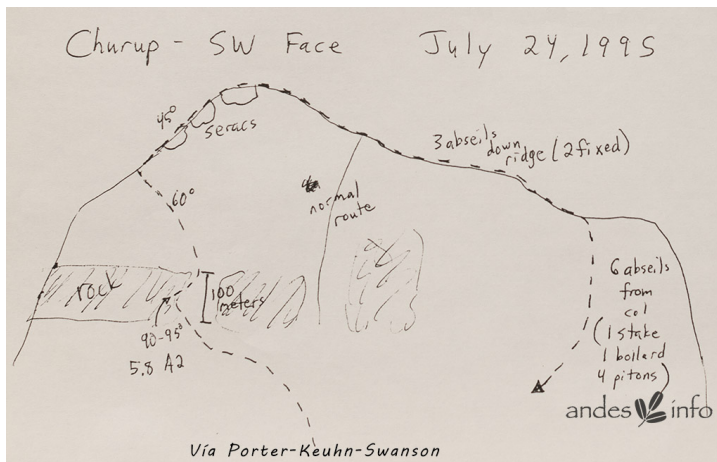 Churup - SW Face July 24, 1995
45°
seracs
3 abseils
down
ridge (2 fixed)
60°
normal
route
rock
100
meters
90-95°
5.8 A2
6 abseils
from
col
(1 stake
1 bollard
4 pitons)
andes info
Vía Porter-Keuhn-Swanson